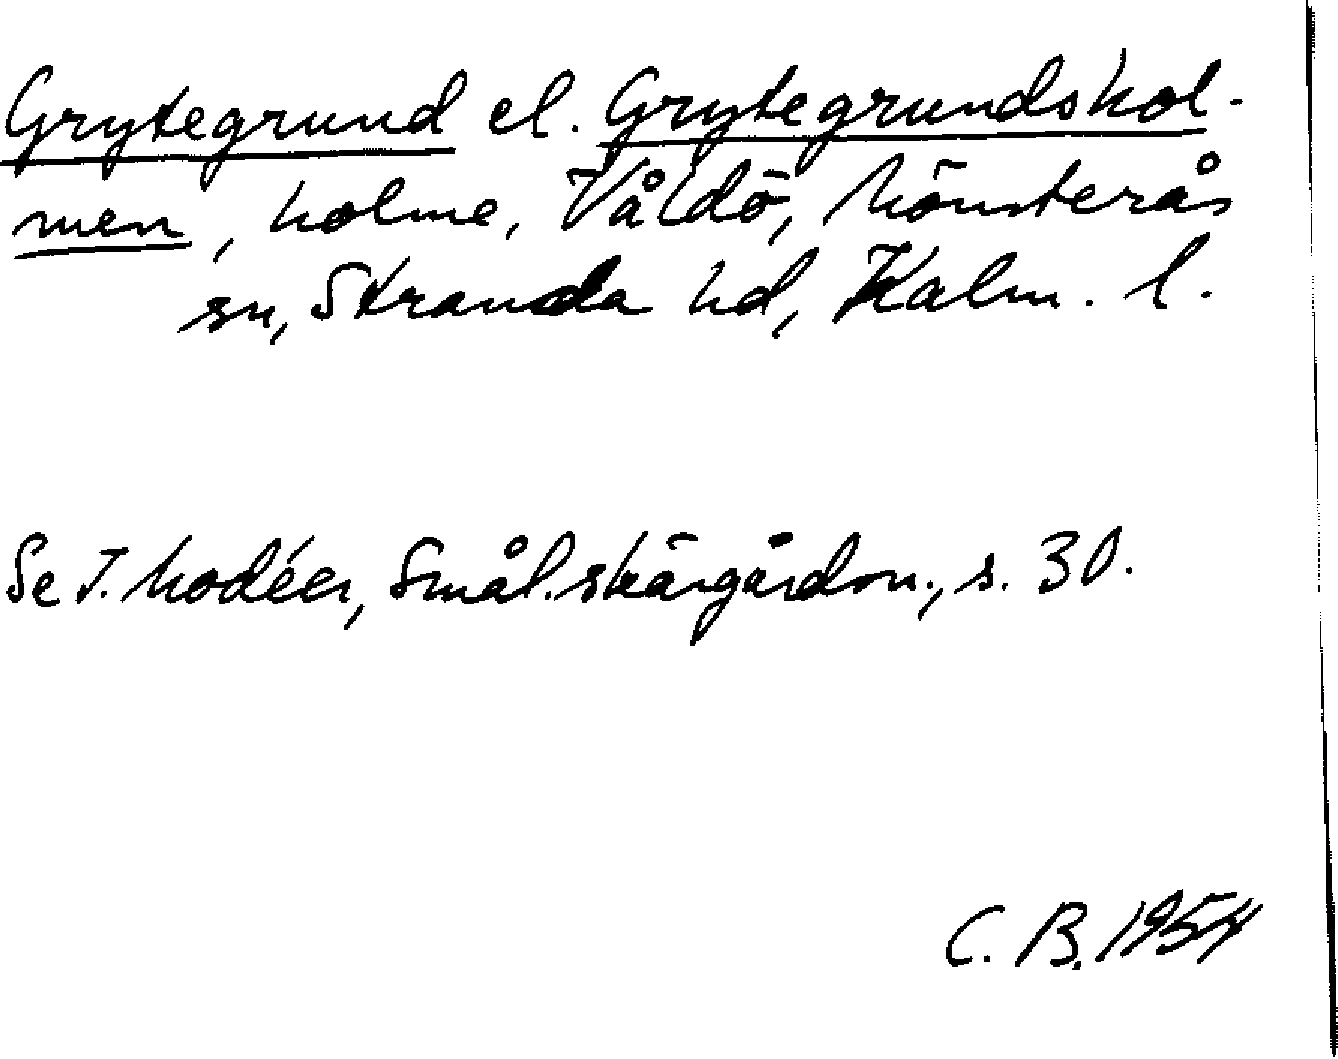 Grytegrund el. Grytegrundshol-
men, holme, Våldö, Mönsterås
sn, Stranda hd, Kalm. l.
Se I. Modéer, Smål. skärgårdsn., s. 30.
C. B. 1954